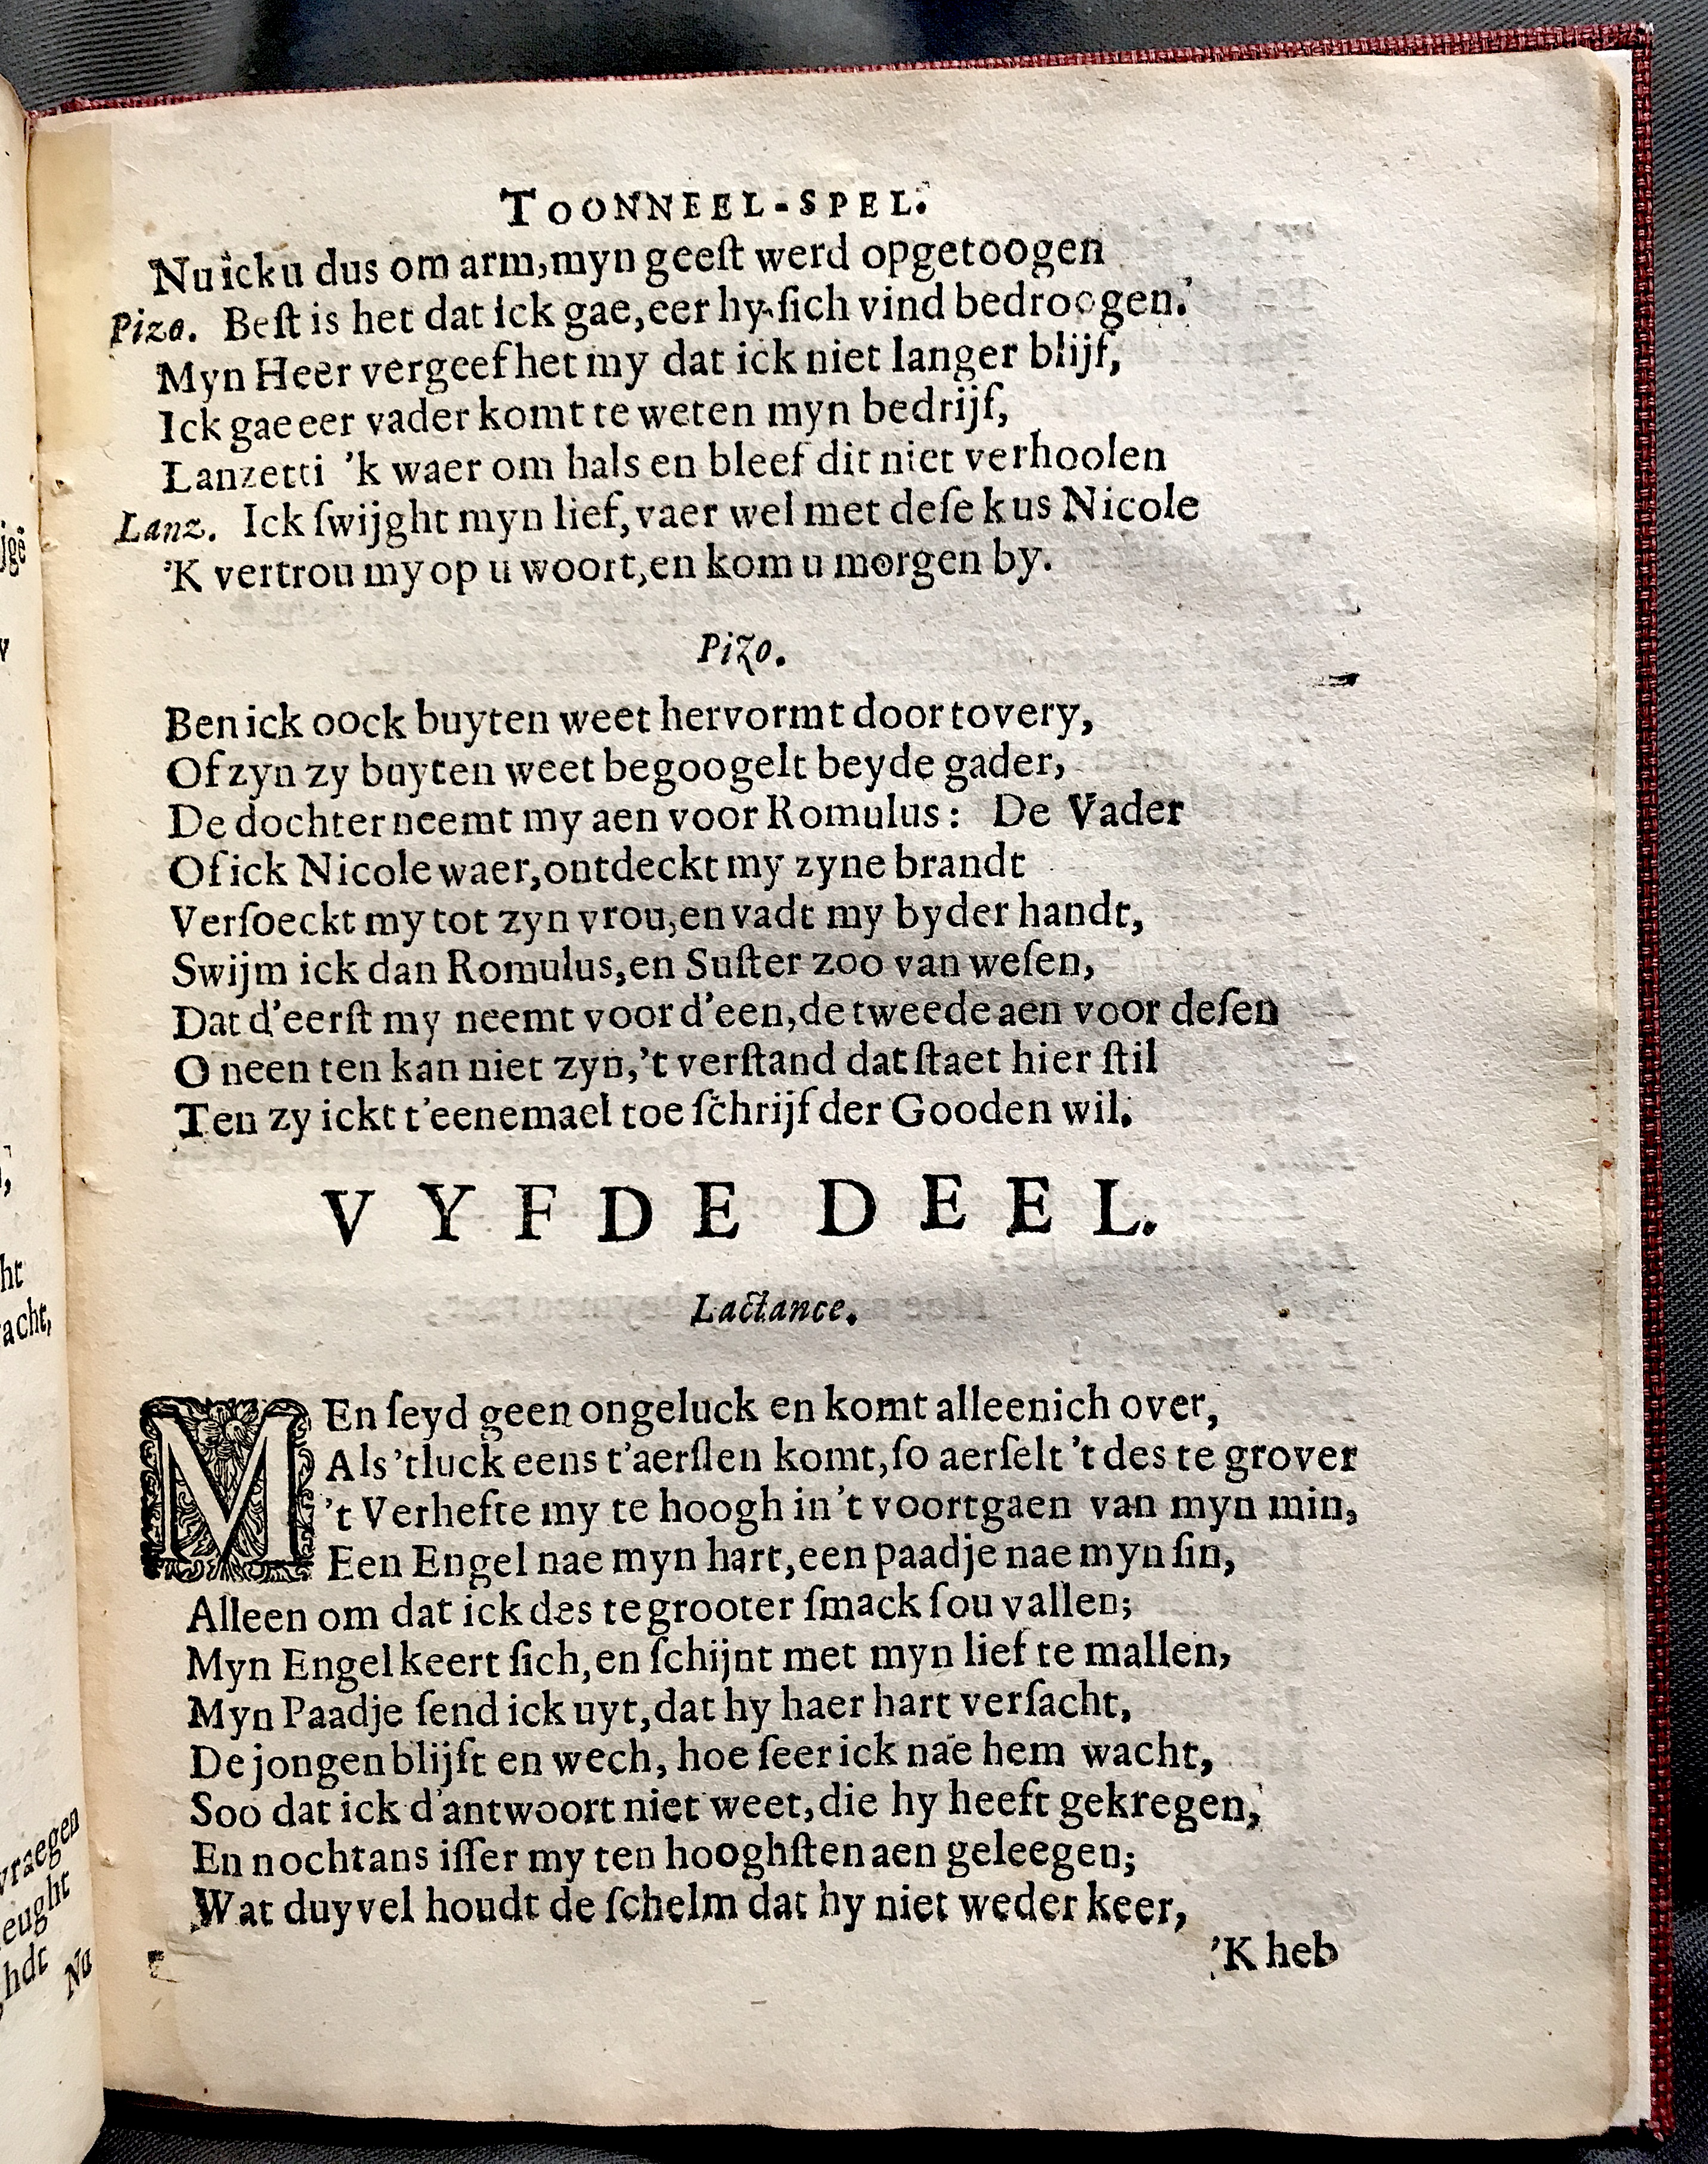 TOONNEEL-SPEL.
Nu ick u dus om arm, myn geeſt werd opgetoogen
Pizo. Beſt is het dat ick gae, eer hy ſich vind bedroogen.
Myn Heer vergeef het my dat ick niet langer blijf,
Ick gae eer vader komt te weten myn bedrijf,
Lanzetti 'k waer om hals en bleef dit niet verhoolen
Lanz. Ick ſwijght myn lief, vaer wel met deſe kus Nicole
'K vertrou my op u woort, en kom u morgen by.
Pizo.
Ben ick oock buyten weet hervormt door tovery,
Of zyn zy buyten weet begoogelt beyde gader,
De dochter neemt my aen voor Romulus: De Vader
Of ick Nicole waer, ontdeckt my zyne brandt
Verſoeckt my tot zyn vrou, en vadt my by der handt,
Swijm ick dan Romulus, en Suſter zoo van weſen,
Dat d'eerſt my neemt voor d'een, de tweede aen voor deſen
O neen ten kan niet zyn, 't verſtand dat ſtaet hier ſtil
Ten zy ickt t'eenemael toe ſchrijf der Gooden wil.
VYFDE DEEL.
Lactance.
MEn ſeyd geen ongeluck en komt alleenich over,
Als 't luck eens t'aerſlen komt, ſo aerſelt 't des te grover
't Verhefte my te hoogh in 't voortgaen van myn min,
Een Engel nae myn hart, een paadje nae myn ſin,
Alleen om dat ick des te grooter ſmack ſou vallen;
Myn Engel keert ſich, en ſchijnt met myn lief te mallen,
Myn Paadje ſend ick uyt, dat hy haer hart verſacht,
De jongen blijft en wech, hoe ſeer ick nae hem wacht,
Soo dat ick d'antwoort niet weet, die hy heeft gekregen,
En nochtans iſſer my ten hooghſten aen geleegen;
Wat duyvel houdt de ſchelm dat hy niet weder keer,
'K heb
vraegen
Na